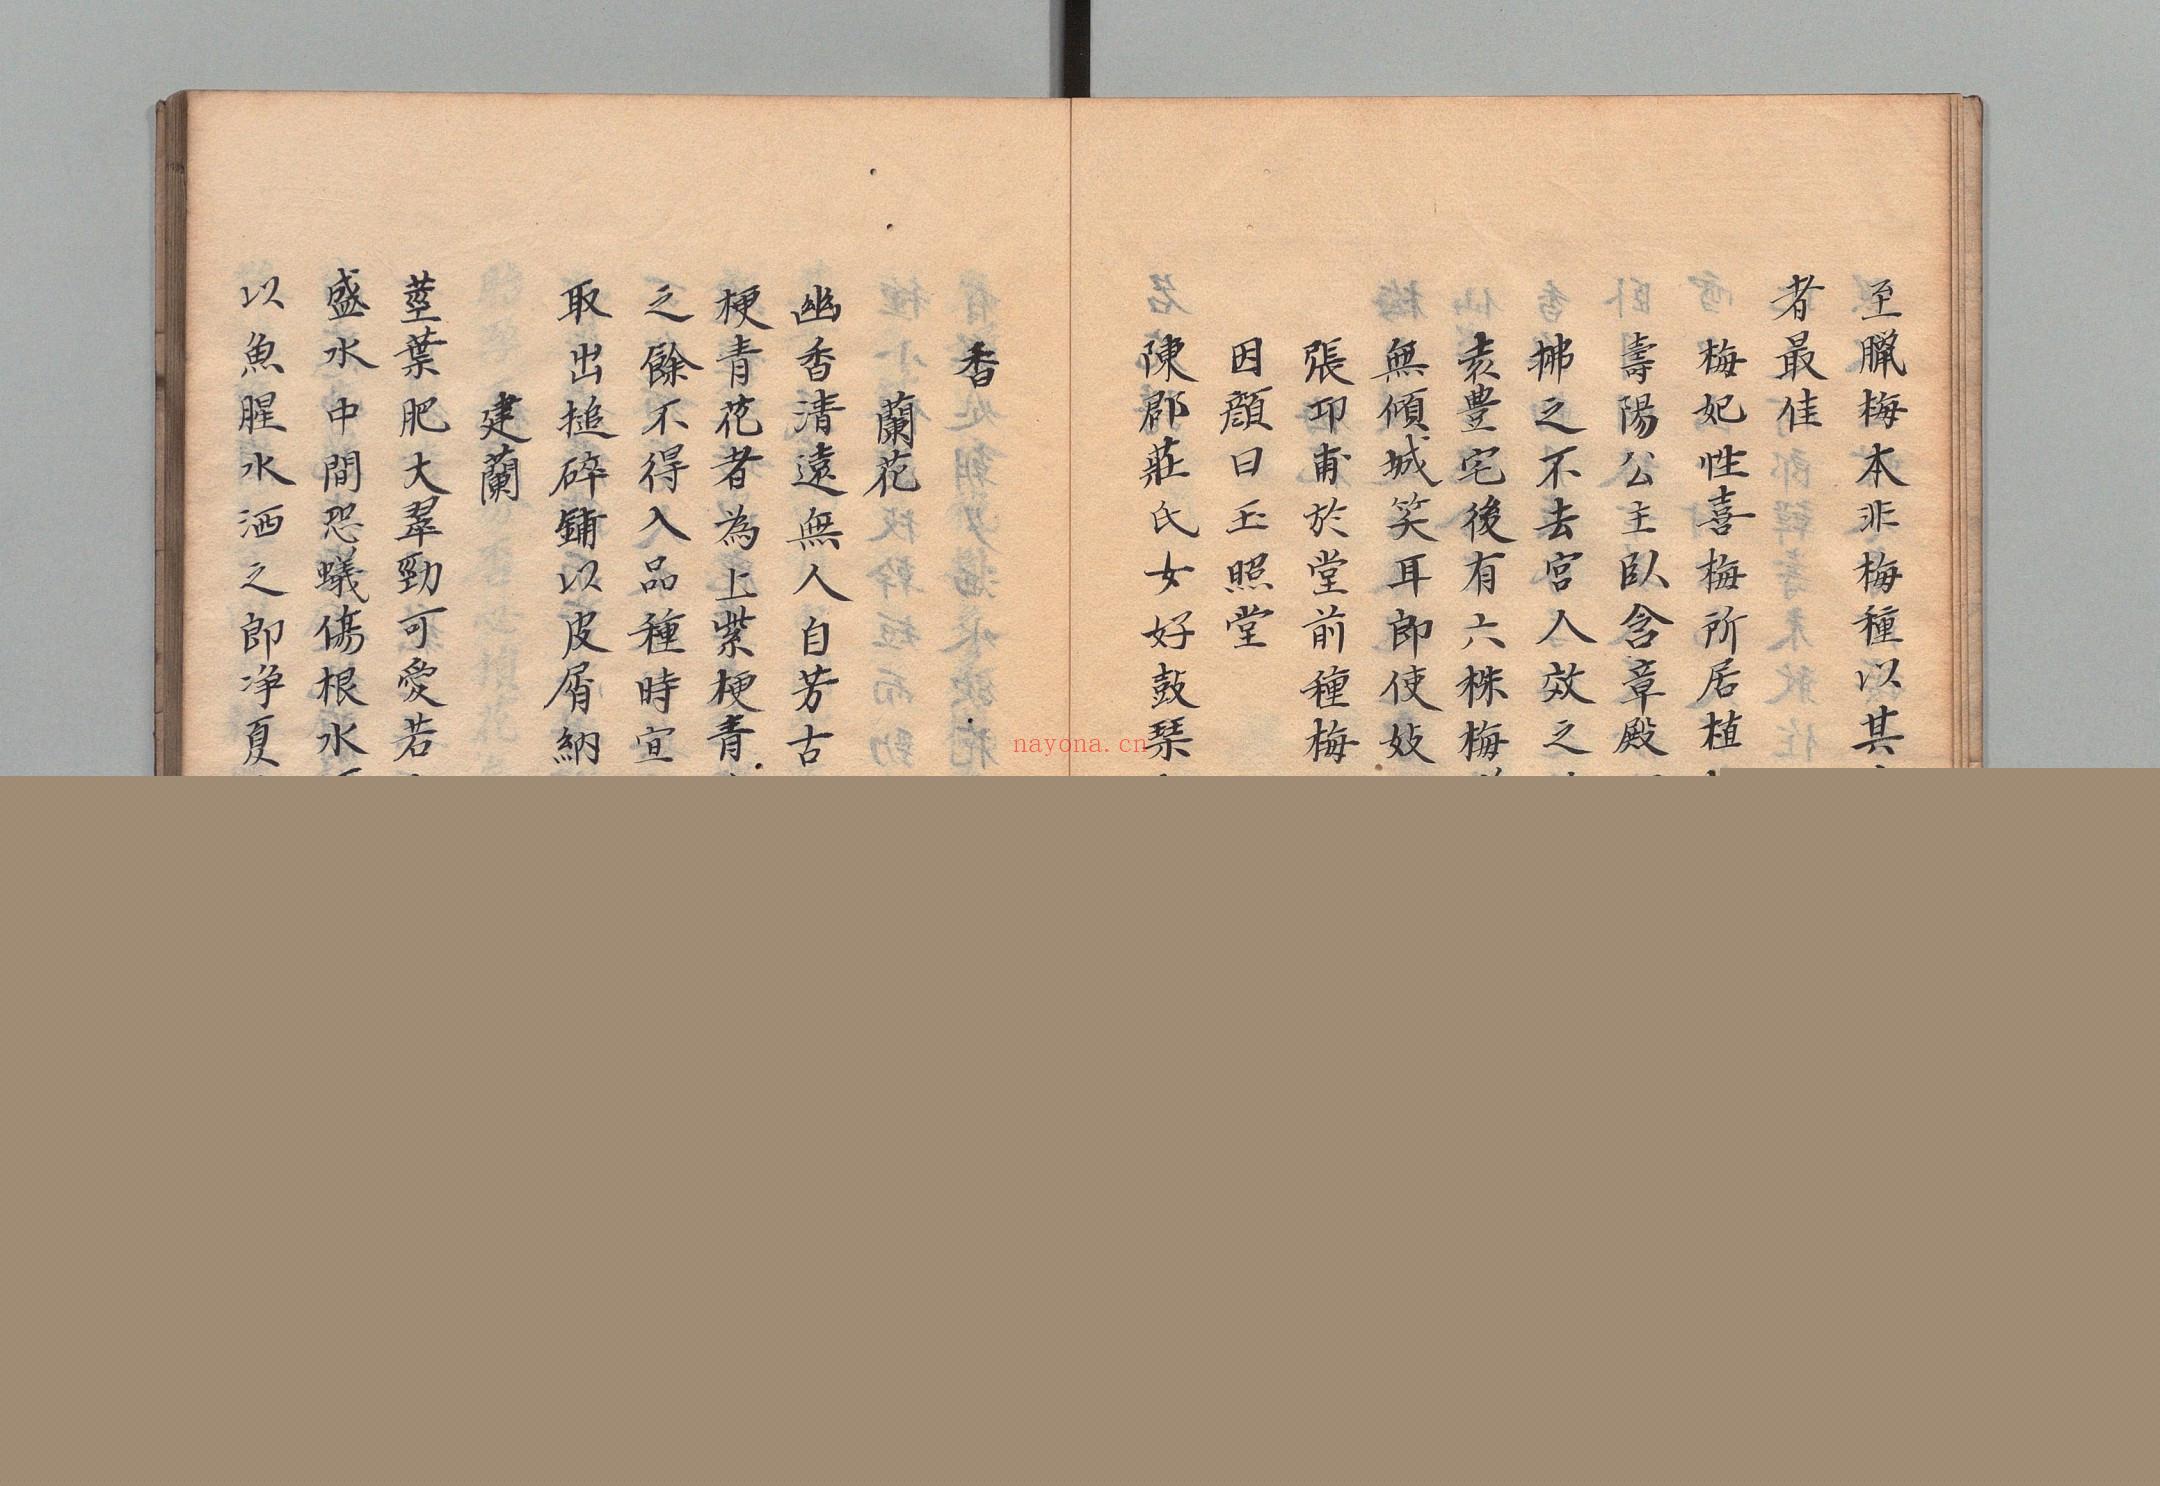 至臘梅本非梅種以其
者最佳
梅妃性喜梅所居植
壽陽公主臥含章殿
拂之不去宮人效之
袁豐宅後有六株梅
無傾城笑耳即使妓
張功甫於堂前種梅
因顏曰玉照堂
陳郡莊氏女好鼓琴
香
蘭花
幽香清遠無人自芳古
梗青花者為上紫梗青
之餘不得入品種時宜
取出搥碎鋪以皮屑納
建蘭
莖葉肥大翠勁可愛若
盛水中間恐蟻傷根水
以魚腥水洒之即净夏
nayona.cn